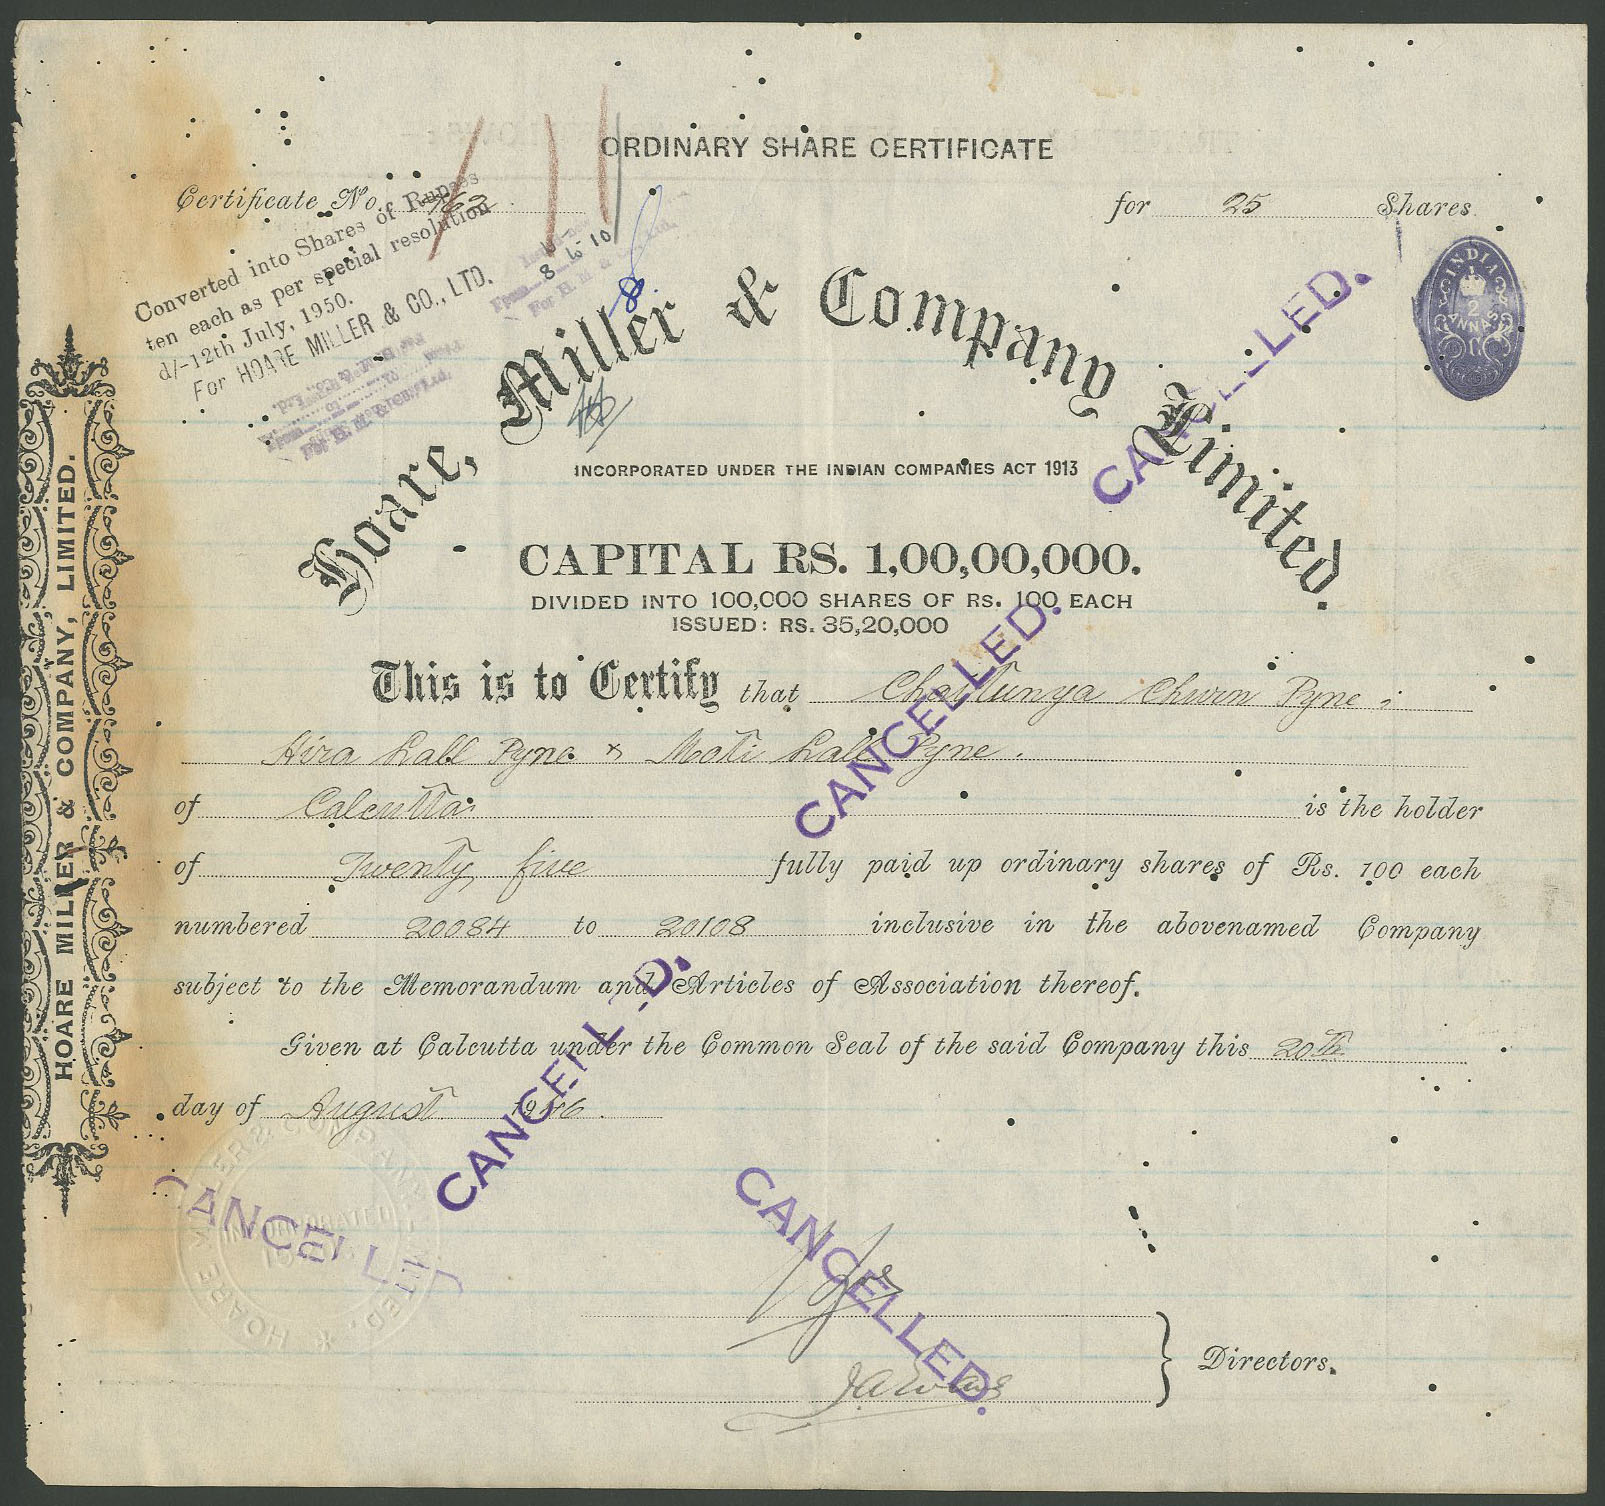 ORDINARY SHARE CERTIFICATE
Certificate No. for 25 Shares
Converted into Shares of Rupees
ten each as per special resolution
d/-12th July, 1950.
For HOARE MILLER & CO., LTD.
INDIA
2
ANNAS
Hoare, Miller & Company Limited.
INCORPORATED UNDER THE INDIAN COMPANIES ACT 1913
CAPITAL RS. 1,00,00,000.
DIVIDED INTO 100,000 SHARES OF RS. 100 EACH
ISSUED: RS. 35,20,000
This is to Certify that Pyne
Hira Lall Pyne & Moti Lall Pyne.
of Calcutta is the holder
of Twenty five fully paid up ordinary shares of Rs. 100 each
numbered 20084 to 20108 inclusive in the abovenamed Company
subject to the Memorandum and Articles of Association thereof.
Given at Calcutta under the Common Seal of the said Company this 20th
day of August 1946.
Directors.
HOARE MILLER & COMPANY, LIMITED.
CANCELLED.
CANCELLED.
CANCELLED.
CANCELLED
CANCELLED.